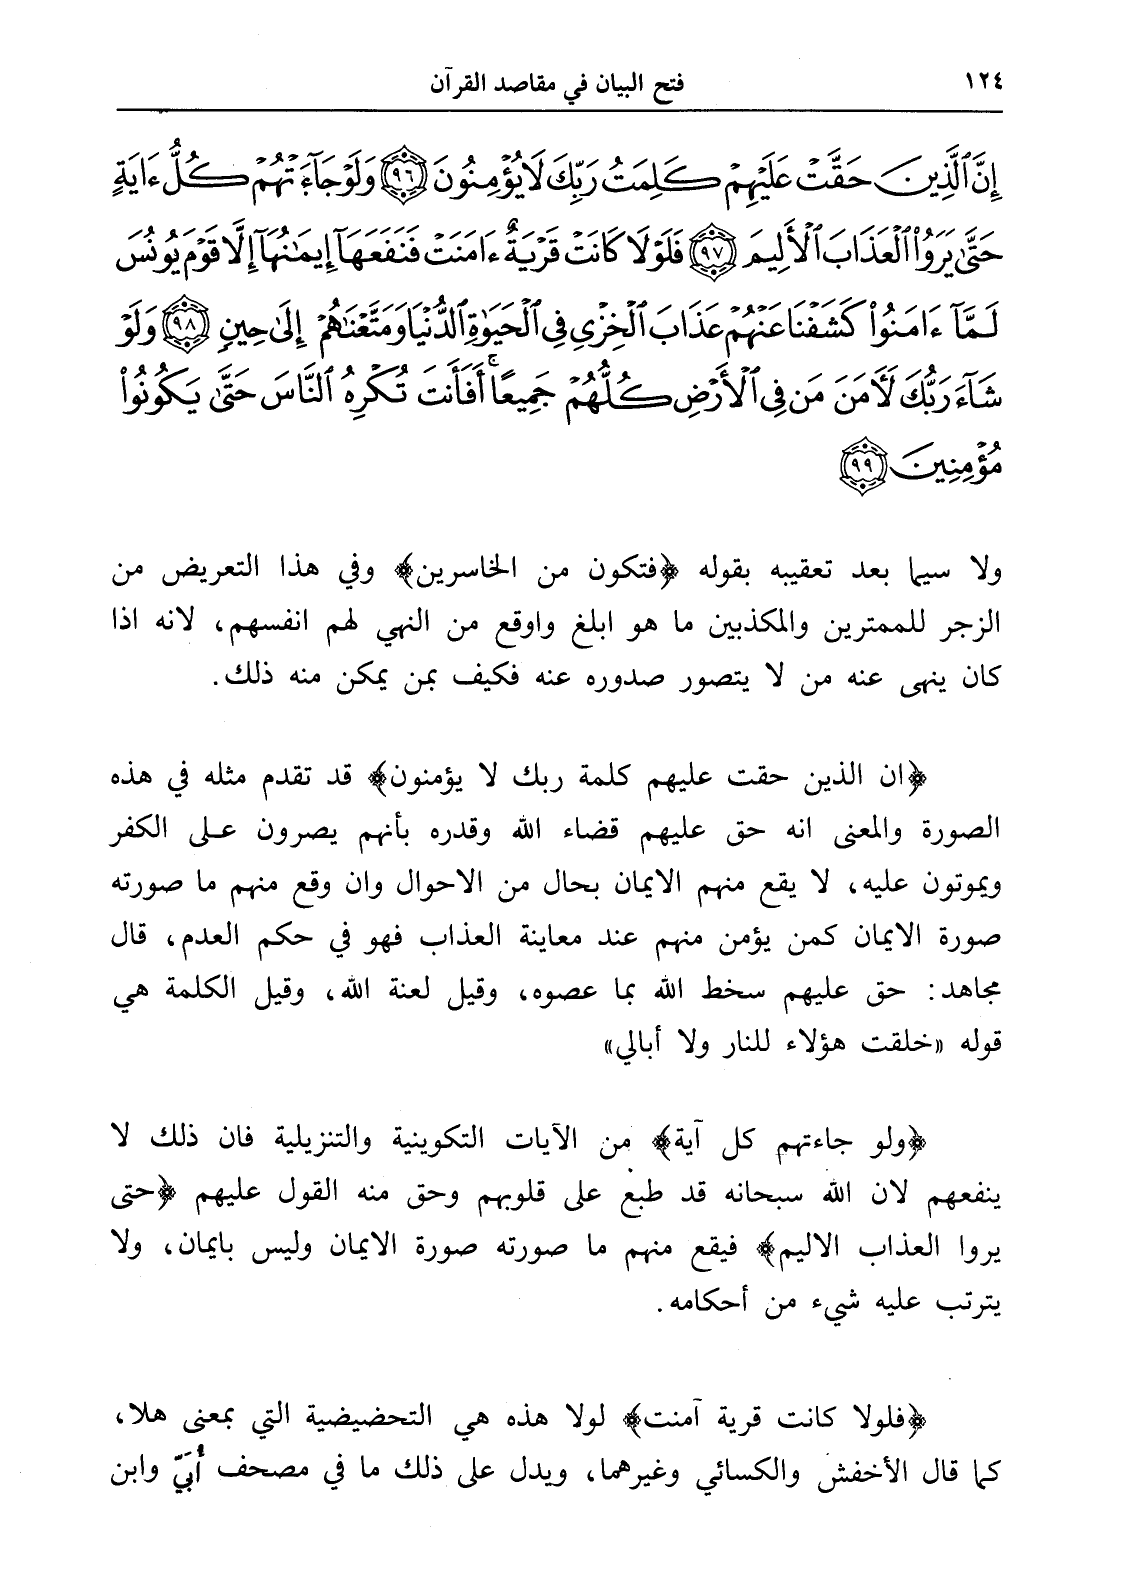 ١٢٤ فتح البيان في مقاصد القرآن
إِنَّ ٱلَّذِينَ حَقَّتۡ عَلَيۡهِمۡ كَلِمَتُ رَبِّكَ لَا يُؤۡمِنُونَ ٩٦ وَلَوۡ جَآءَتۡهُمۡ كُلُّ ءَايَةٍ
حَتَّىٰ يَرَوُاْ ٱلۡعَذَابَ ٱلۡأَلِيمَ ٩٧ فَلَوۡلَا كَانَتۡ قَرۡيَةٌ ءَامَنَتۡ فَنَفَعَهَآ إِيمَٰنُهَآ إِلَّا قَوۡمَ يُونُسَ
لَمَّآ ءَامَنُواْ كَشَفۡنَا عَنۡهُمۡ عَذَابَ ٱلۡخِزۡيِ فِي ٱلۡحَيَوٰةِ ٱلدُّنۡيَا وَمَتَّعۡنَٰهُمۡ إِلَىٰ حِينٍ ٩٨ وَلَوۡ
شَآءَ رَبُّكَ لَأٓمَنَ مَن فِي ٱلۡأَرۡضِ كُلُّهُمۡ جَمِيعًاۚ أَفَأَنتَ تُكۡرِهُ ٱلنَّاسَ حَتَّىٰ يَكُونُواْ
مُؤۡمِنِينَ ٩٩
ولا سيما بعد تعقيبه بقوله ﴿فتكون من الخاسرين﴾ وفي هذا التعريض من
الزجر للممترين والمكذبين ما هو ابلغ واوقع من النهي لهم انفسهم، لانه اذا
كان ينهى عنه من لا يتصور صدوره عنه فكيف بمن يمكن منه ذلك.
﴿ان الذين حقت عليهم كلمة ربك لا يؤمنون﴾ قد تقدم مثله في هذه
الصورة والمعنى انه حق عليهم قضاء الله وقدره بأنهم يصرون على الكفر
ويموتون عليه، لا يقع منهم الايمان بحال من الاحوال وان وقع منهم ما صورته
صورة الايمان كمن يؤمن منهم عند معاينة العذاب فهو في حكم العدم، قال
مجاهد: حق عليهم سخط الله بما عصوه، وقيل لعنة الله، وقيل الكلمة هي
قوله «خلقت هؤلاء للنار ولا أبالي»
﴿ولو جاءتهم كل آية﴾ من الآيات التكوينية والتنزيلية فان ذلك لا
ينفعهم لان الله سبحانه قد طبع على قلوبهم وحق منه القول عليهم ﴿حتى
يروا العذاب الاليم﴾ فيقع منهم ما صورته صورة الايمان وليس بايمان، ولا
يترتب عليه شيء من أحكامه.
﴿فلولا كانت قرية آمنت﴾ لولا هذه هي التحضيضية التي بمعنى هلا،
كما قال الأخفش والكسائي وغيرهما، ويدل على ذلك ما في مصحف أُبَيّ وابن